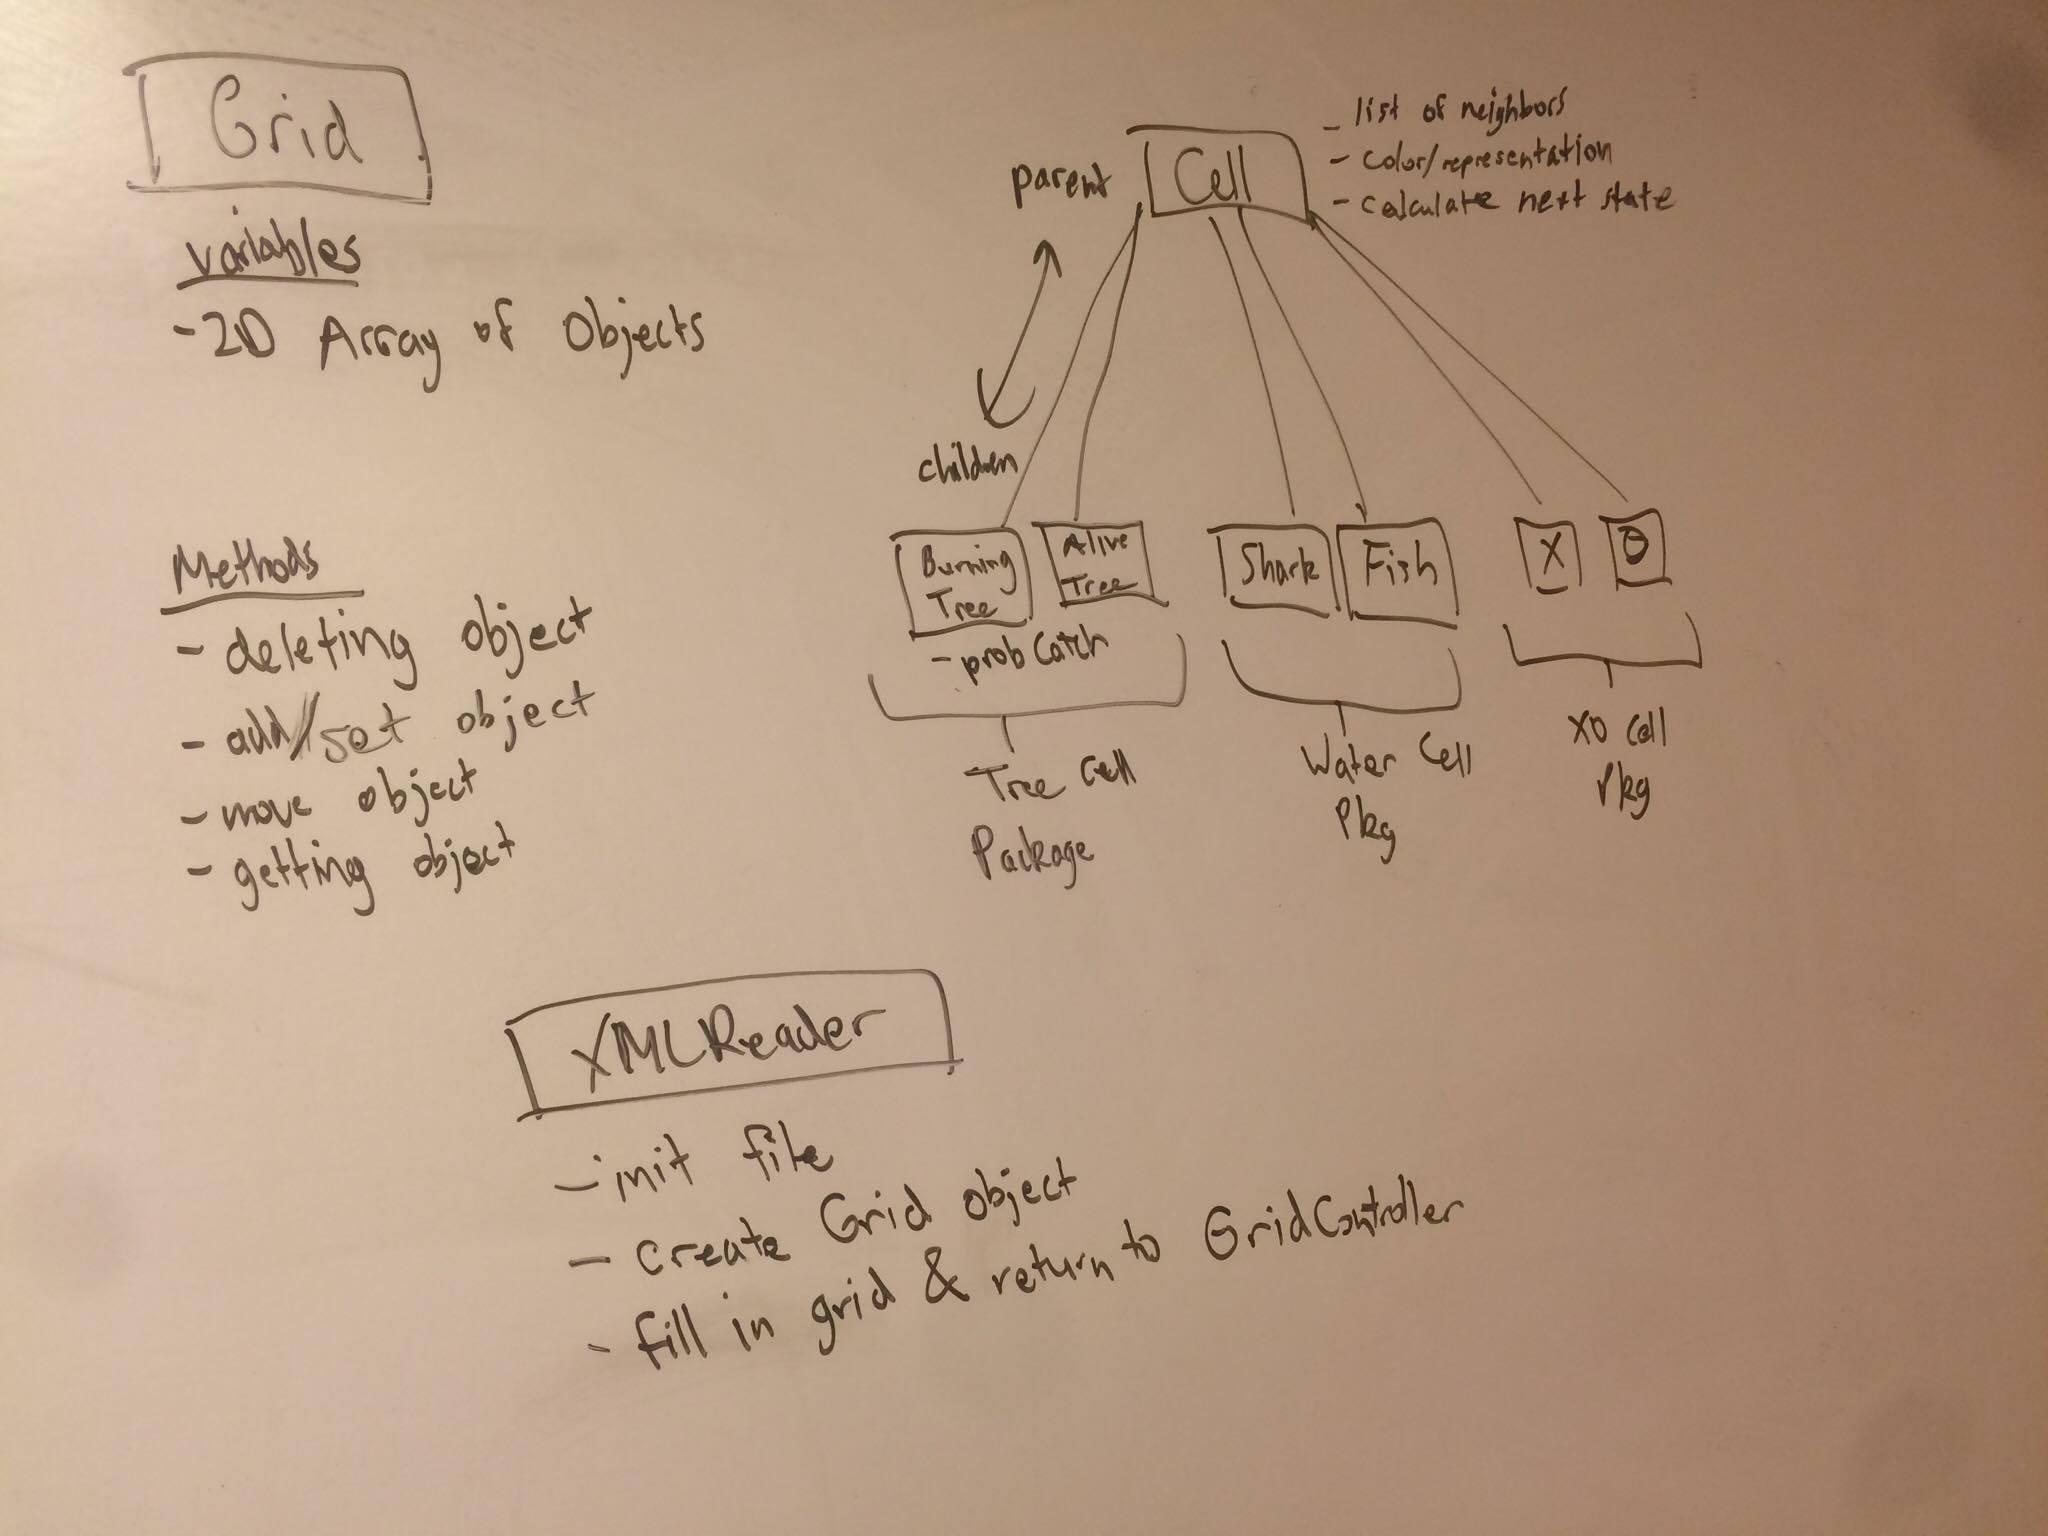 Grid
variables
- 2D Array of Objects
Methods
- deleting object
- add/set object
- move object
- getting object
parent
Cell
- list of neighbors
- color/representation
- calculate next state
children
Burning
Tree
Alive
Tree
- probCatch
Shark
Fish
X
O
Tree Cell
Package
Water Cell
Pkg
XO Cell
Pkg
XMLReader
- init file
- create Grid object
- fill in grid & return to GridController